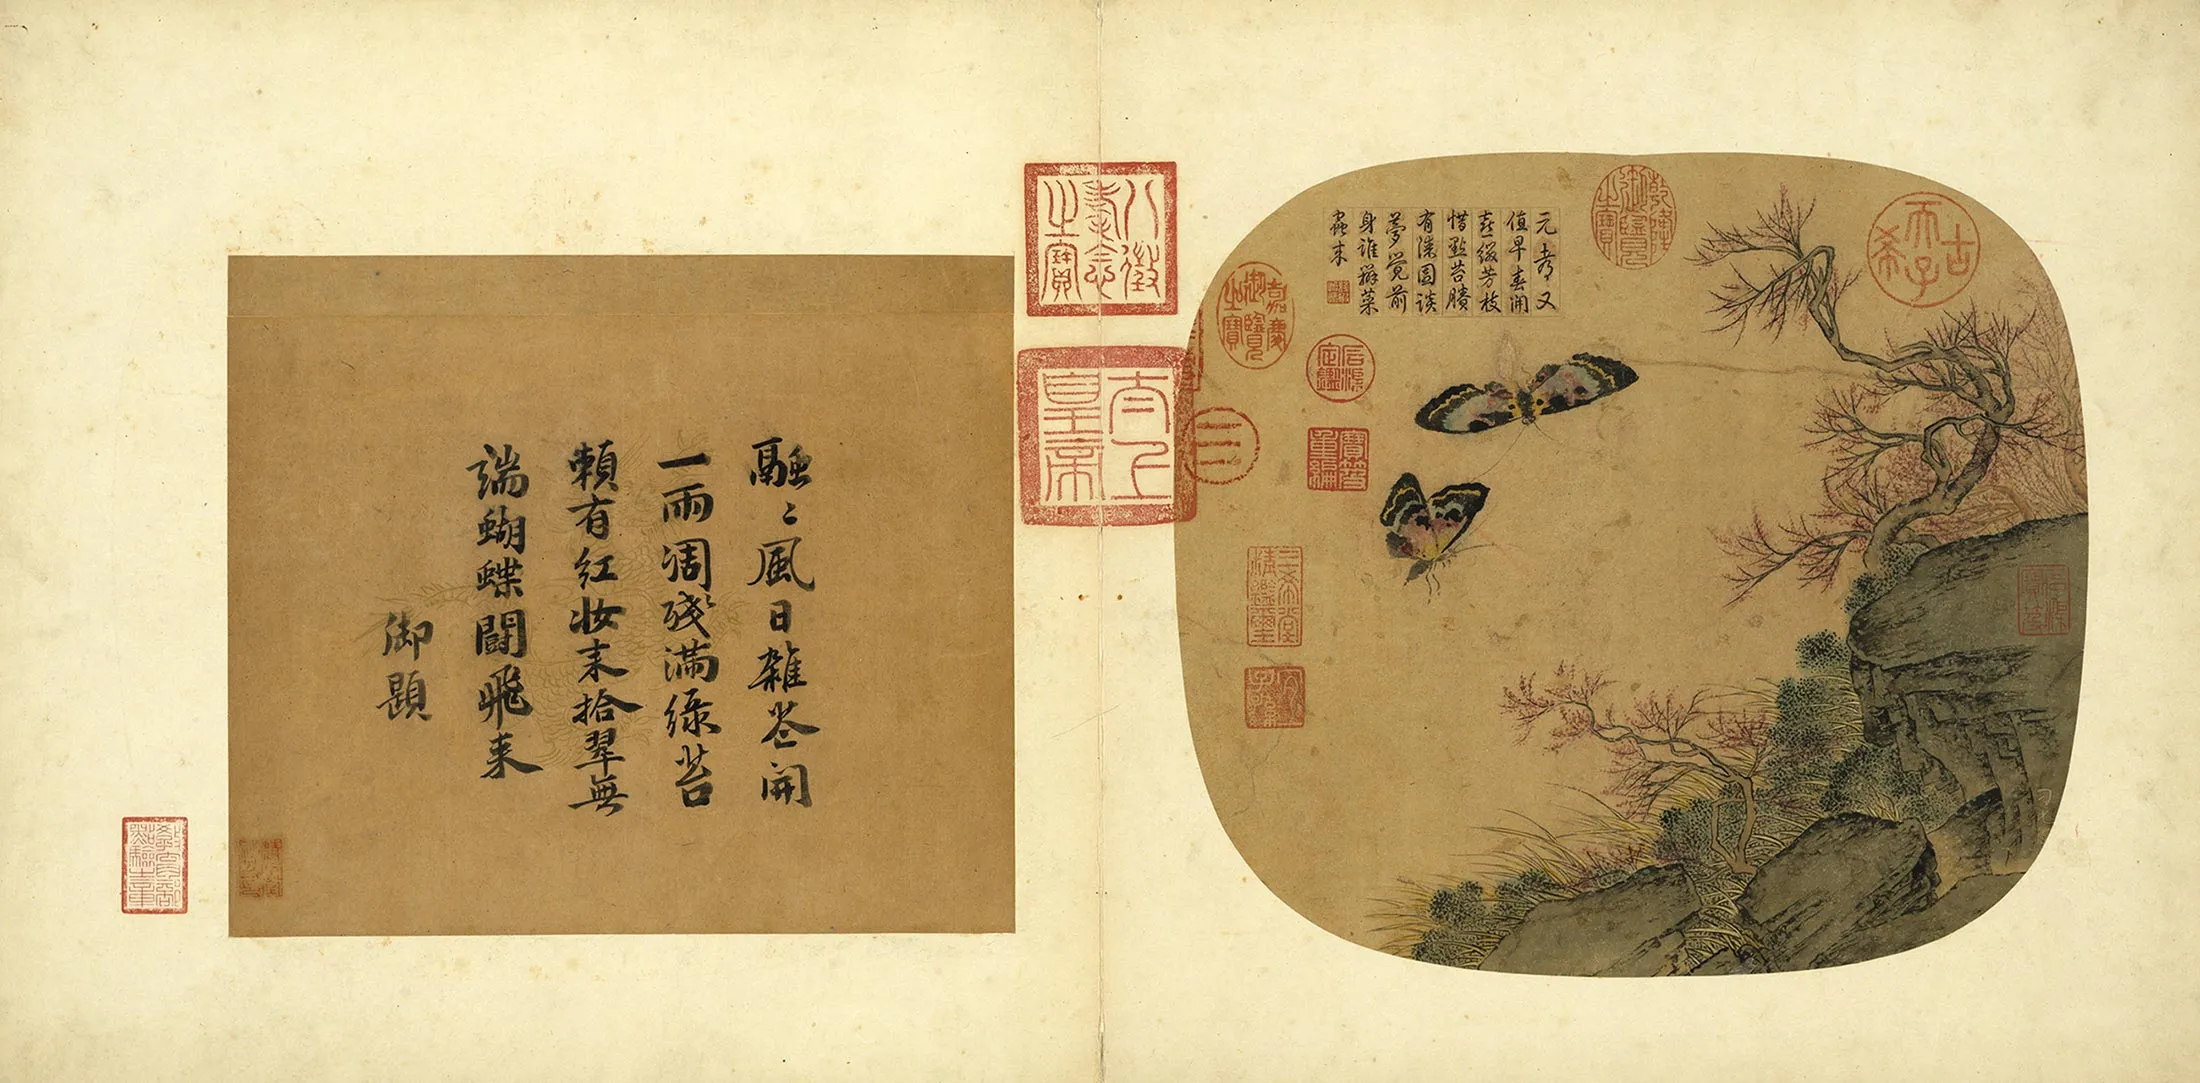 古希天子
乾隆御覽之寶
元都又
值早春開
喜綴芳枝
惜點苔賸
有漆園談
夢覺前
身誰辨菜
蟲来
嘉慶御覽之寶
石渠定鑑
寶笈重編
三希堂精鑑璽
宜子孫
石渠寶笈
八徵耄念之寶
太上皇帝
融〻風日雜花開
一雨凋殘滿綠苔
賴有紅妝来拾翠無
端蝴蝶鬪飛来
御題